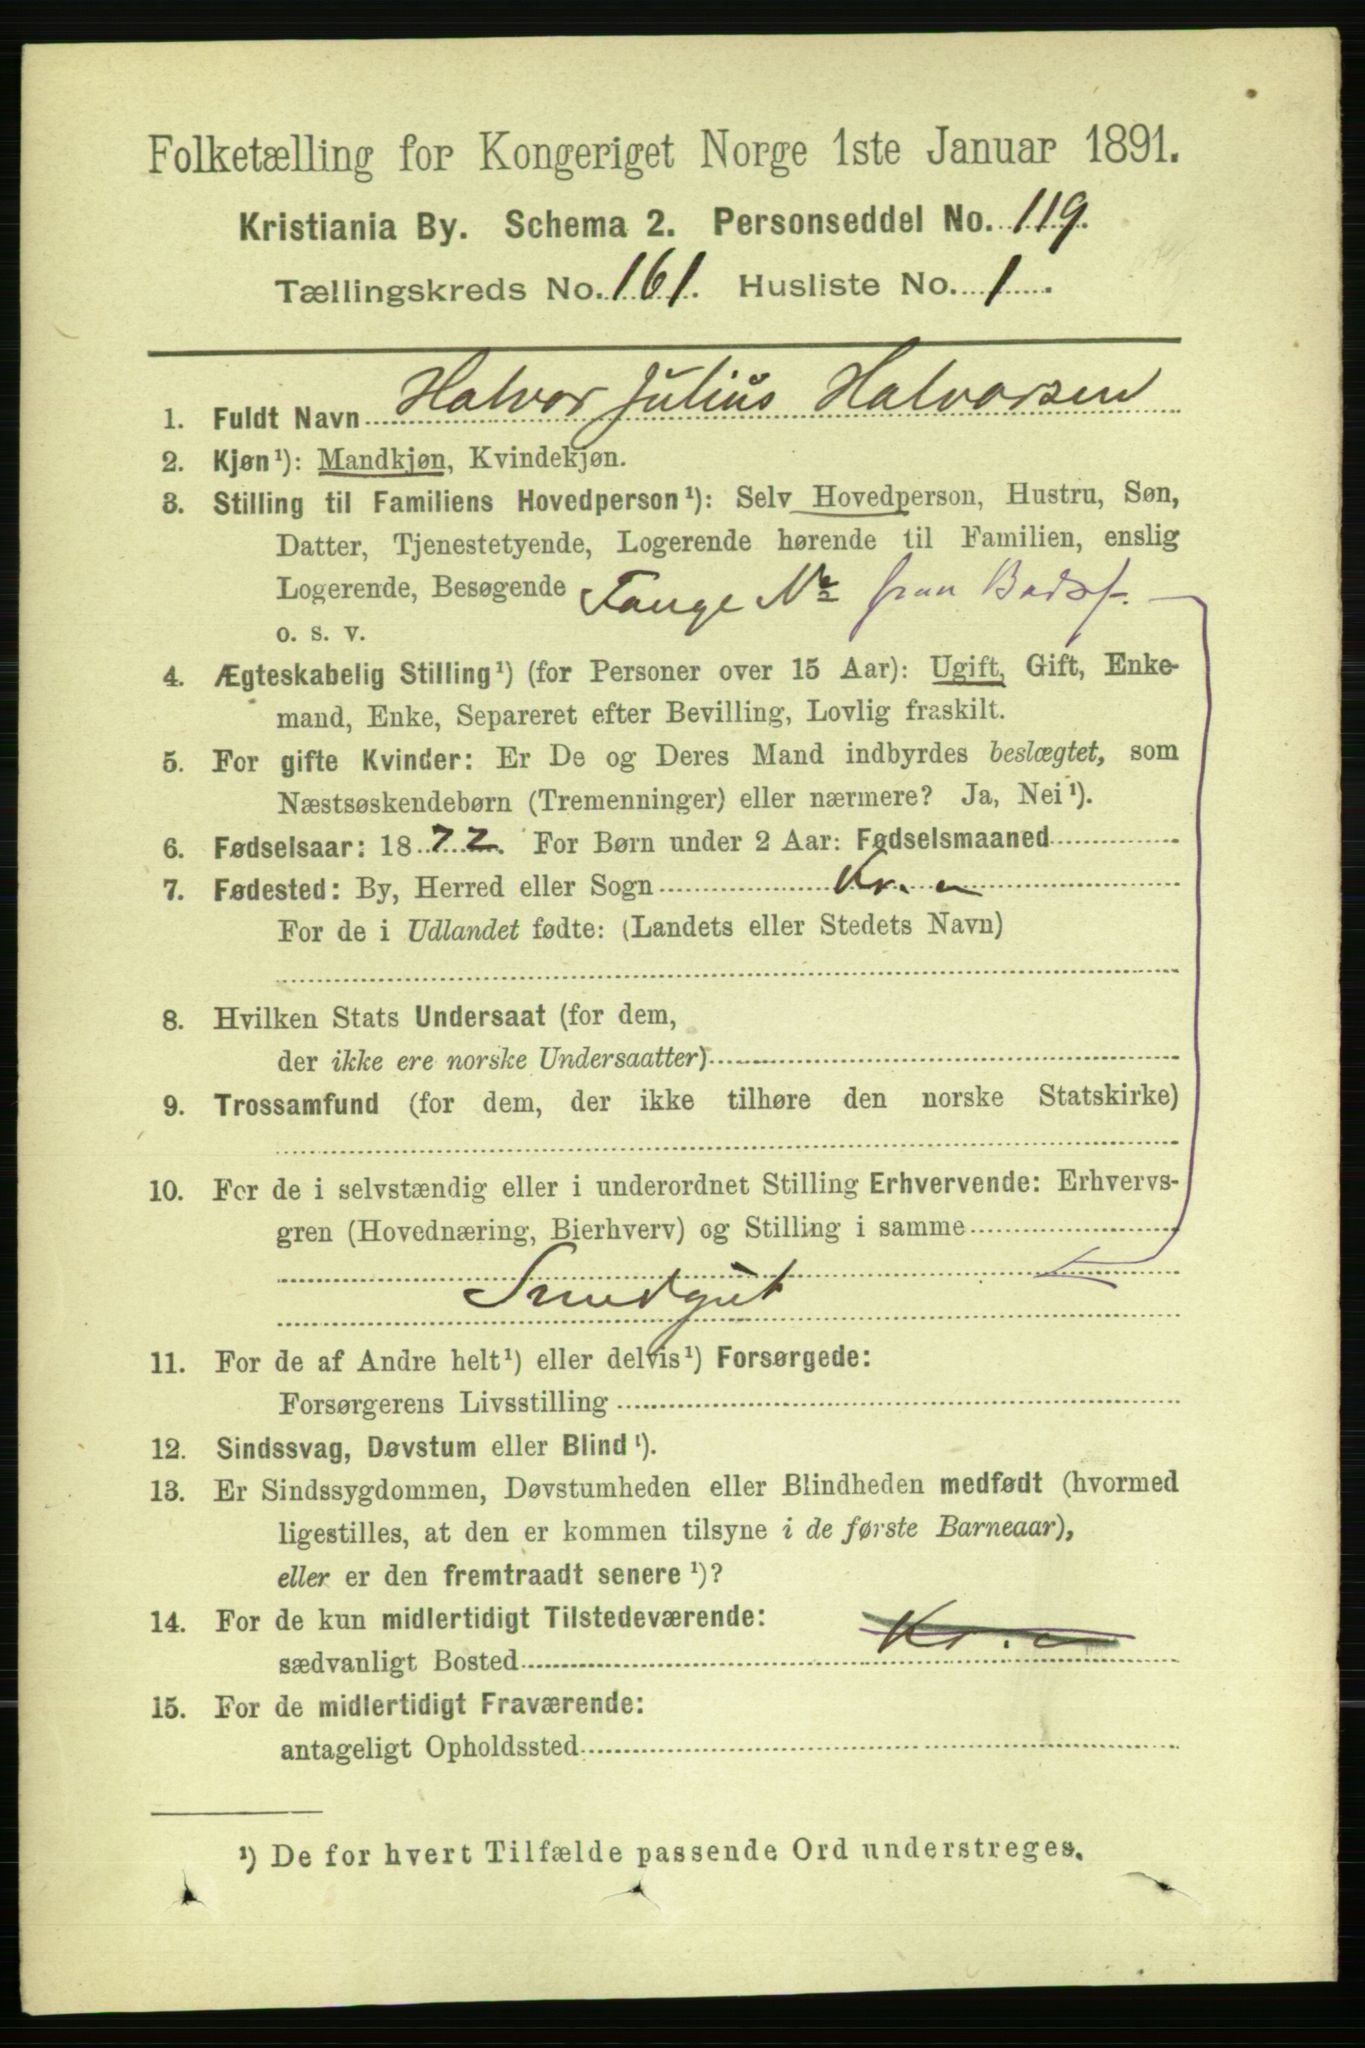 Folketælling for Kongeriget Norge 1ste Januar 1891.
Kristiania By. Schema 2. Personseddel No. 119.
Tællingskreds No. 161. Husliste No. 1.
1. Fuldt Navn Halvor Julius Halvorsen
2. Kjøn¹): Mandkjøn, Kvindekjøn.
3. Stilling til Familiens Hovedperson¹): Selv Hovedperson, Hustru, Søn,
Datter, Tjenestetyende, Logerende hørende til Familien, enslig
Logerende, Besøgende Fange No fraa Bodsf.
o. s. v.
4. Ægteskabelig Stilling¹) (for Personer over 15 Aar): Ugift, Gift, Enke-
mand, Enke, Separeret efter Bevilling, Lovlig fraskilt.
5. For gifte Kvinder: Er De og Deres Mand indbyrdes beslægtet, som
Næstsøskendebørn (Tremenninger) eller nærmere? Ja, Nei¹).
6. Fødselsaar: 1872. For Børn under 2 Aar: Fødselsmaaned
7. Fødested: By, Herred eller Sogn Kr.a
For de i Udlandet fødte: (Landets eller Stedets Navn)
8. Hvilken Stats Undersaat (for dem,
der ikke ere norske Undersaatter)
9. Trossamfund (for dem, der ikke tilhøre den norske Statskirke)
10. For de i selvstændig eller i underordnet Stilling Erhvervende: Erhvervs-
gren (Hovednæring, Bierhverv) og Stilling i samme
Smedgut
11. For de af Andre helt¹) eller delvis¹) Forsørgede:
Forsørgerens Livsstilling
12. Sindssvag, Døvstum eller Blind¹).
13. Er Sindssygdommen, Døvstumheden eller Blindheden medfødt (hvormed
ligestilles, at den er kommen tilsyne i de første Barneaar),
eller er den fremtraadt senere¹)?
14. For de kun midlertidigt Tilstedeværende:
sædvanligt Bosted Kr.a
15. For de midlertidigt Fraværende:
antageligt Opholdssted
¹) De for hvert Tilfælde passende Ord understreges.